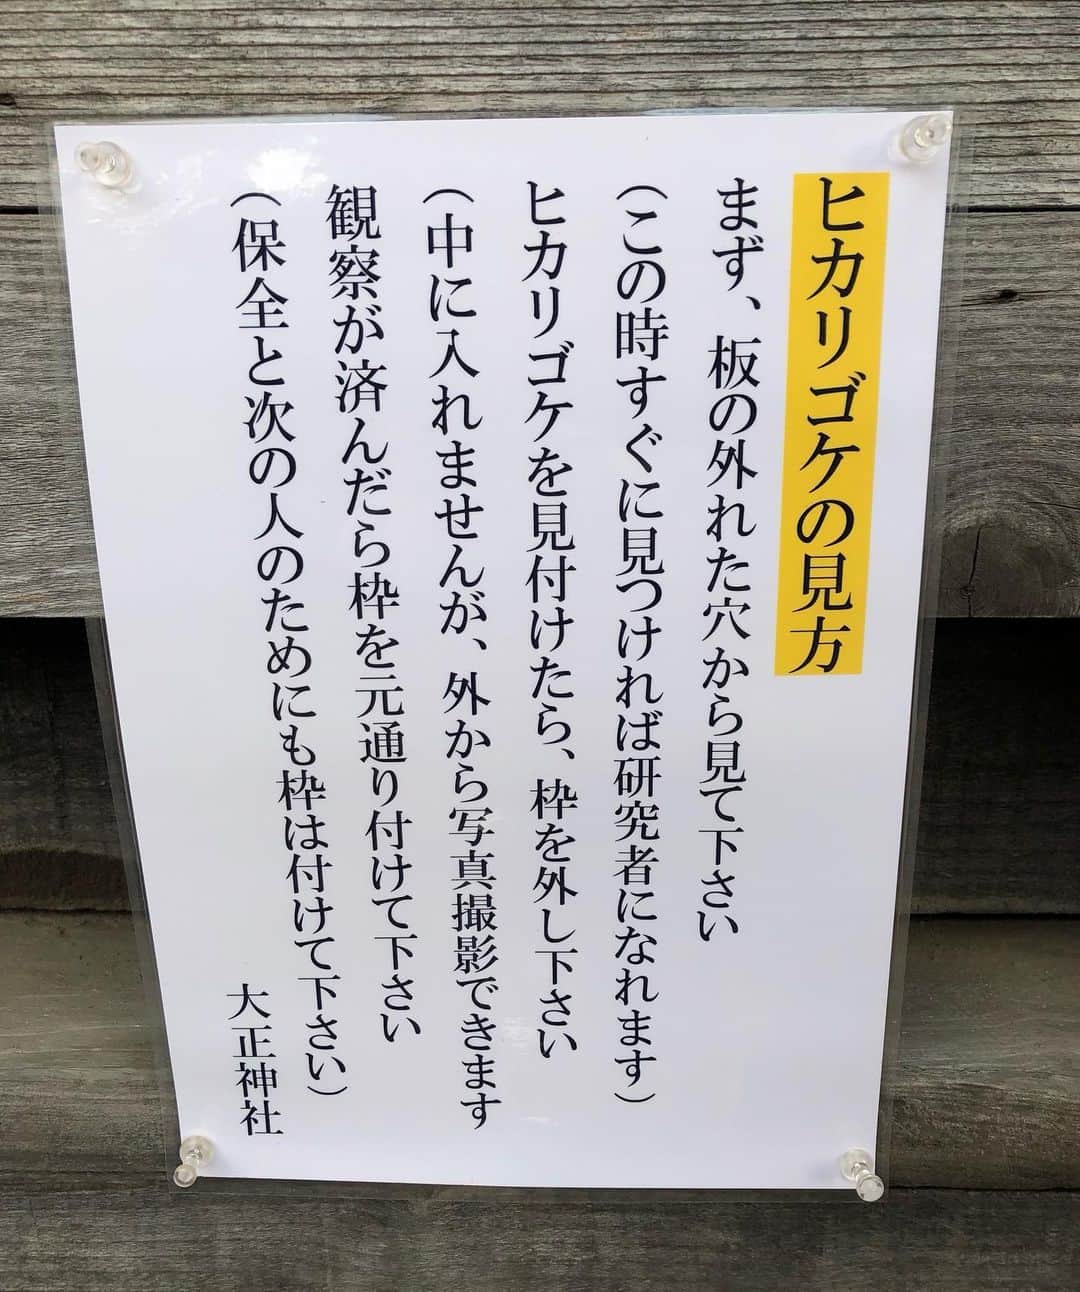 ヒカリゴケの見方
まず、板の外れた穴から見て下さい
(この時すぐに見つければ研究者になれます)
ヒカリゴケを見付けたら、枠を外し下さい
(中に入れませんが、外から写真撮影できます
観察が済んだら枠を元通り付けて下さい
(保全と次の人のためにも枠は付けて下さい)
大正神社